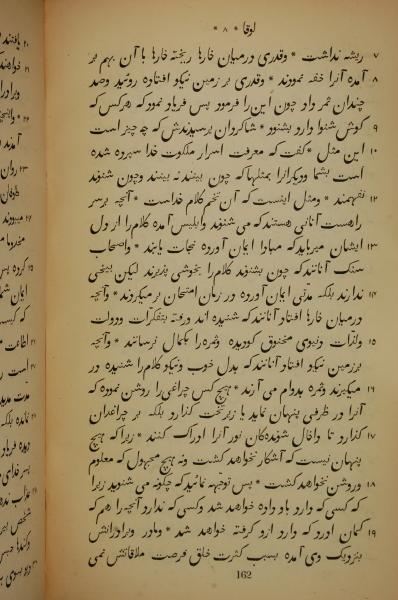 لوقا * ۸ *
۷ ریشه نداشت * وقدری درمیان خارها ریخته خارها با آن بهم بر
۸ آمده آنرا خفه نمودند * وقدری بر زمین نیکو افتاده روئید وصد
چندان ثمر داد چون این را فرمود پس فریاد نمود که هر کس که
۹ گوش شنوا دارد بشنود * شاکردان پرسیدندش که چه چیز است
۱۰ این مثل * گفت که معرفت اسرار ملکوت خدا سپرده شده
است بشما ودیگرانرا بمثلها که چون بینند نه بینند وچون شنوند
۱۲ نفهمند * ومثل اینست که آن تخم کلام خداست * آنچه بر سر
راهست آنانی هستند که می شنوند وابلیس آمده کلام را از دل
۱۳ ایشان میرباید که مبادا ایمان آورده نجات یابند * واصحاب
سنک آنانند که چون بشنوند کلام را بخوشی پذیرند لیکن بیخی
۱۴ ندارند بلکه مدتی ایمان آورده در زمان امتحان بر میکردند * وآنچه
درمیان خارها افتاد آنانند که شنیده اند ورفته بتفکرات ودولت
۱۵ ولذات دنیوی مخنوق کردیده وثمره را بکمال نرسانند * وآنچه
بر زمین نیکو افتاد آنانند که بدل خوب ونیکو کلام را شنیده در
۱۶ میکیرند وثمره بدوام می آرند * هیچ کس چراغی را روشن نموده که
آنرا در ظرفی پنهان نماید یا زیر تخت کذارد بلکه بر چراغدان
۱۷ کذارد تا داخل شوندکان نور آنرا ادراک کنند * زیرا که هیچ
پنهان نیست که آشکار نخواهد کشت ونه هیچ مجهول که معلوم
۱۸ وروشن نخواهد کشت * پس توجه نمائید که چگونه می شنوید زیرا
که کسی که دارد باو داده خواهد شد وکسی که ندارد آنچه را هم که
۱۹ کمان دارد که دارد ازو کرفته خواهد شد * ومادر وبرادرانش
بنزدیک وی آمده بسبب کثرت خلق فرصت ملاقاتش نمی
162